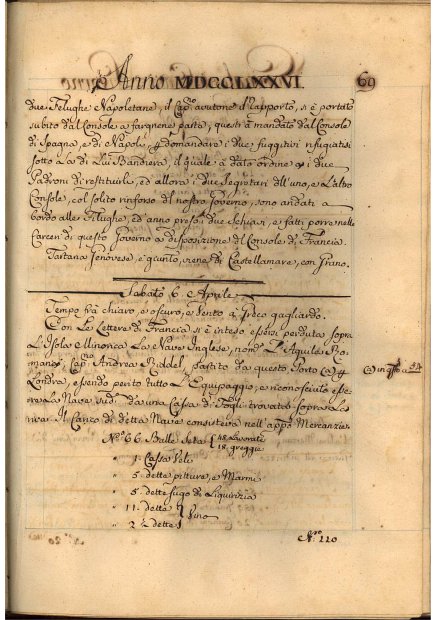 Anno MDCCLXXVI. 69
due Felughe Napoletane, il Cap.º avutone il rapporto, si è portato
subito dal Console a fargnene parte, questi à mandato dal Console
di Spagna, e di Napoli a domandare i due fuggitivi rifugiatisi
sotto a di Lui Bandiera, il quale à dato ordine a i due
Padroni di restituirli, ed allora i due Segretari dell'uno, e L'altro
Console, col solito rinforzo del nostro Governo, sono andati a
bordo alle Filughe, ed anno presi i due Schiavi, e fatti porre nelle
Carceri di questo Governo a disposizione del Console di Francia.
Tartana Genovese, è giunto, viene di Castellamare, con Grano.
Sabato 6. Aprile
Tempo frà chiaro, e oscuro, e Vento a Greco gagliardo.
Con Le Lettere di Francia si è inteso essersi perduta sopra
L'Isola Minorica La Nave Inglese, nom.ta L'Aquila Ro-
mana, Cap.no Andrea Riddel, partito da questo Porto (a) p
Londra, essendo perito tutto L'Equipaggio, e riconosciuto esse-
re La Nave sud.a da una Cassa di Fogli trovata sopra La
riva. Il Carico di detta Nave consisteva nell'app.o Mercanzie.
(a) in questo a 54
N.º 66. Balle Seta { 48. Lavorate
18. greggie
" 1. Cassa Veli
" 5. dette pitture, e Marmi
" 5. dette sugo di Liquirizia
" 11. dette } Vino
" 2 ½ dette
N.ro 110